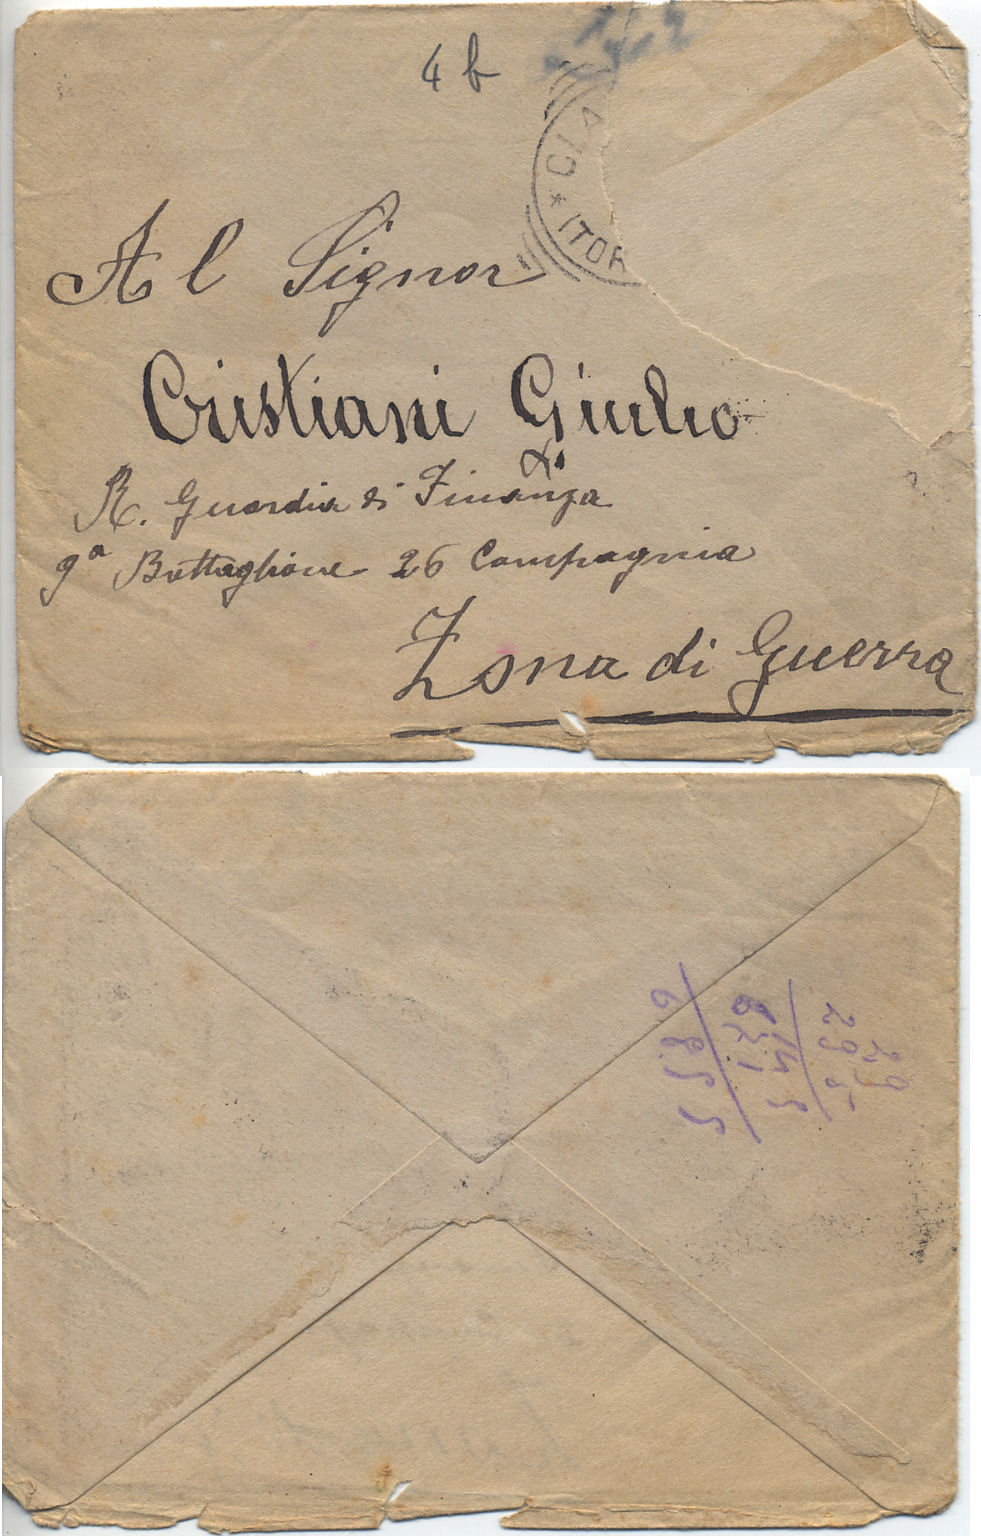 4 b
CIA
* ITOR
Al Signor
Cristiani Giulio
R. Guardia di Finanza
9ª Battaglione 26 Compagnia
Zona di Guerra